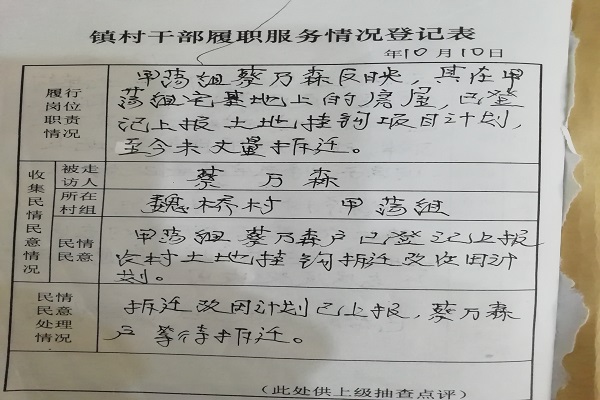 镇村干部履职服务情况登记表
年10月10日
履行
岗位
职责
情况
甲荡组蔡乃森反映，其在甲
荡组宅基地上的房屋，已登
记上报土地挂钩项目计划，
至今未丈量拆迁。
收集民情民意情况
被走
访人
蔡乃森
所在
村组
魏桥村 甲荡组
民情
民意
甲荡组蔡乃森户已登记上报
次村土地挂钩拆迁改次田计
划。
民情
民意
处理
情况
拆迁改田计划已上报，蔡乃森
户等待拆迁。
（此处供上级抽查点评）